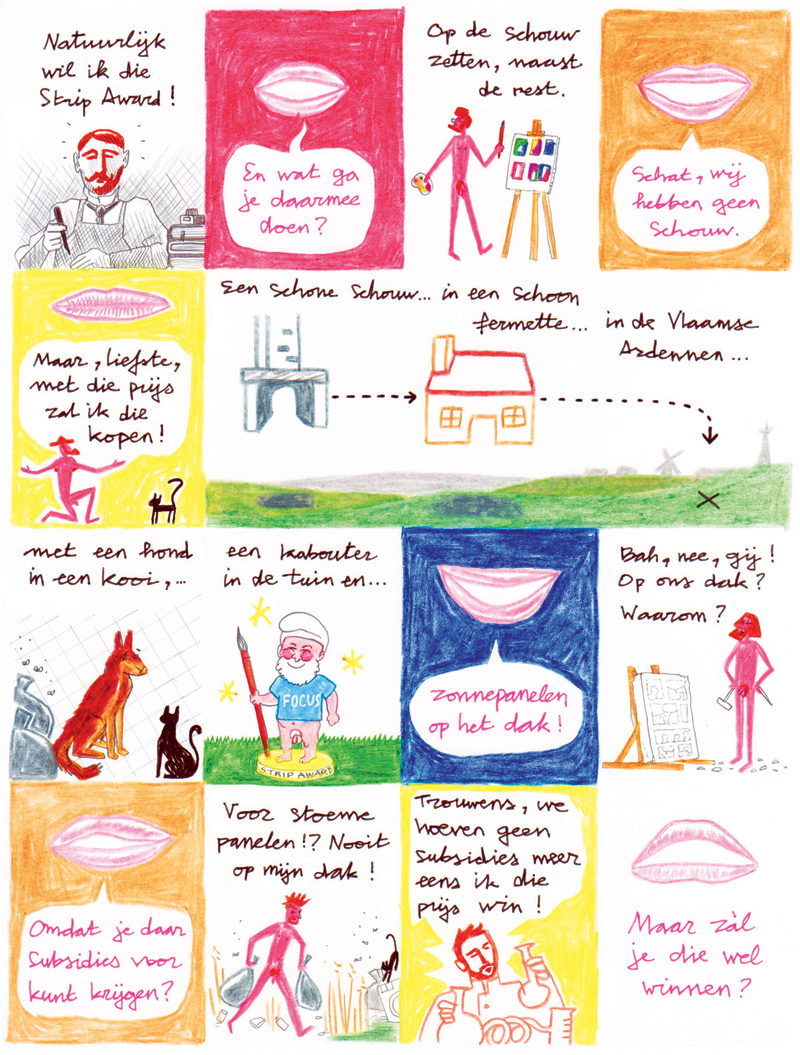 Natuurlijk
wil ik die
Strip Award!
En wat ga
je daarmee
doen?
Op de schouw
zetten, naast
de rest.
Schat, wij
hebben geen
schouw.
Maar, liefste,
met die prijs
zal ik die
kopen!
Een schone schouw... in een schoon
fermette...
in de Vlaamse
Ardennen...
met een hond
in een kooi,...
een kabouter
in de tuin en...
FOCUS
STRIP AWARD
zonnepanelen
op het dak!
Bah, nee, gij!
Op ons dak?
Waarom?
Omdat je daar
subsidies voor
kunt krijgen?
Voor stoeme
panelen!? Nooit
op mijn dak!
Trouwens, we
hoeven geen
subsidies meer
eens ik die
prijs win!
Maar zàl
je die wel
winnen?